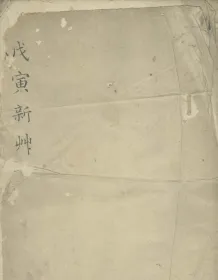 戊寅新艸